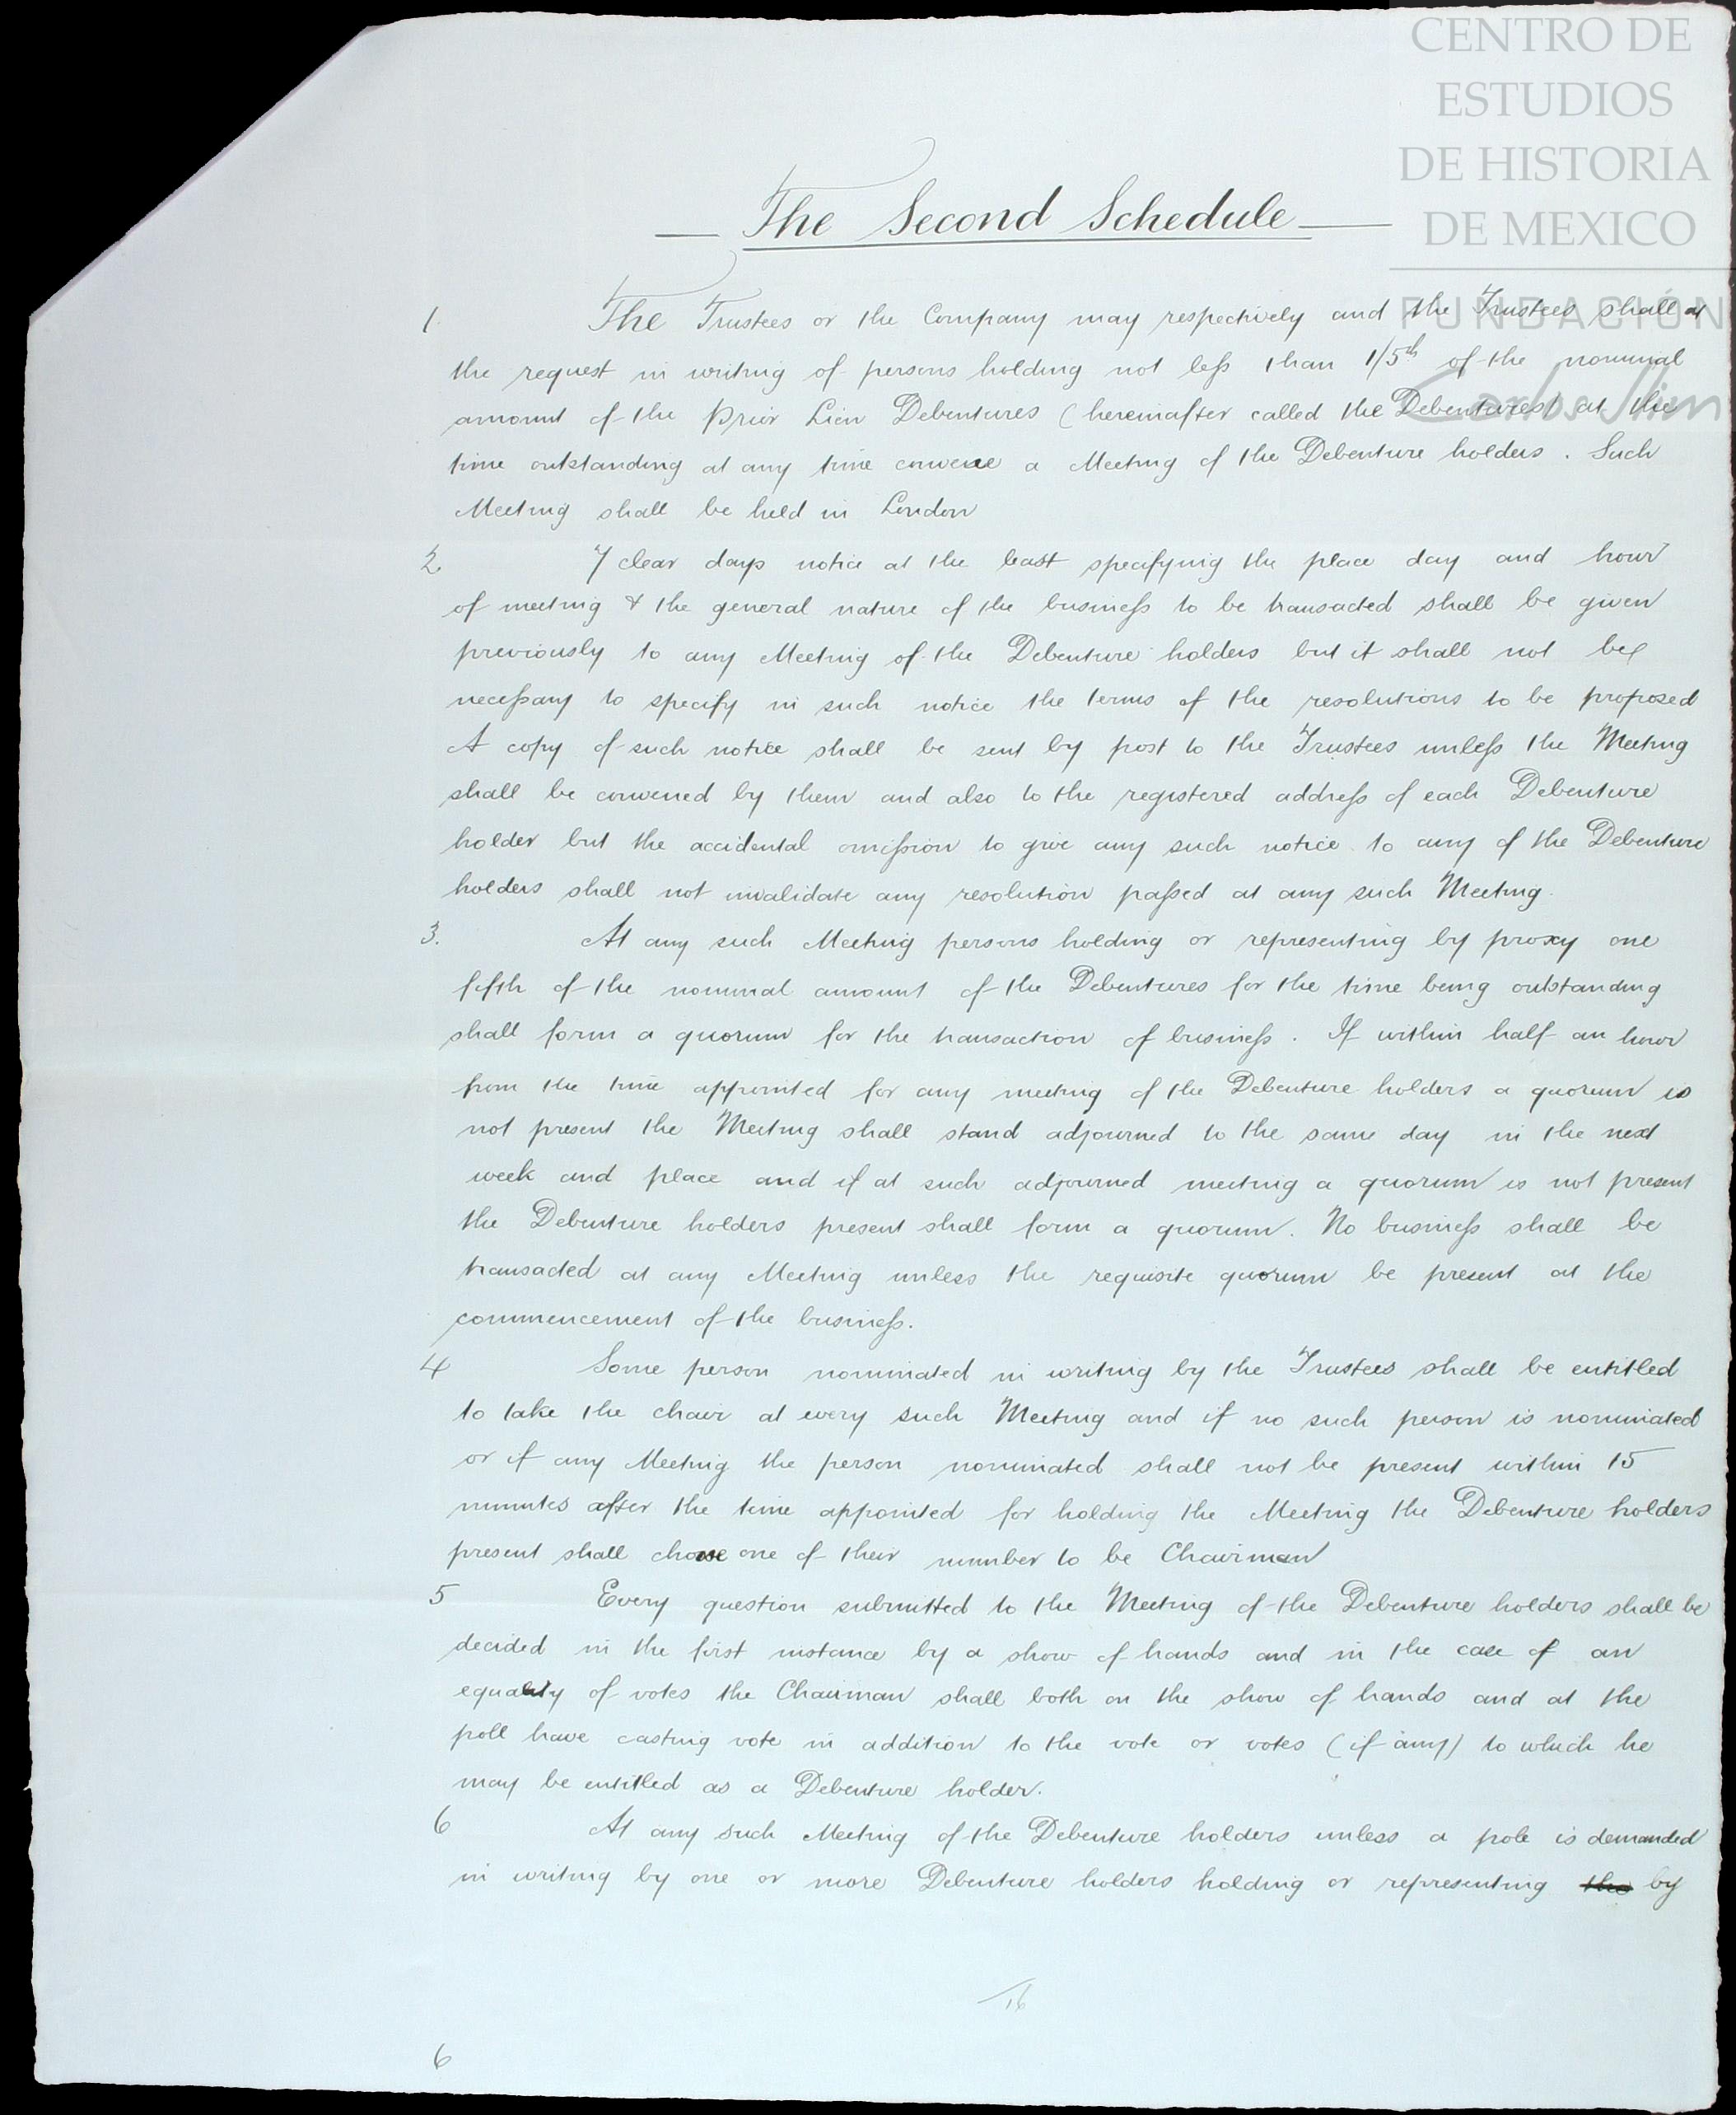 CENTRO DE
ESTUDIOS
DE HISTORIA
DE MEXICO
FUNDACIÓN
Carlos Slim
The Second Schedule
1. The Trustees or the Company may respectively and the Trustees shall at
the request in writing of persons holding not less than 1/5th of the nominal
amount of the Prior Lien Debentures (hereinafter called the Debentures) at the
time outstanding at any time convene a Meeting of the Debenture holders. Such
Meeting shall be held in London
2 7 clear days notice at the least specifying the place day and hour
of meeting & the general nature of the business to be transacted shall be given
previously to any Meeting of the Debenture holders but it shall not be
necessary to specify in such notice the terms of the resolutions to be proposed
A copy of such notice shall be sent by post to the Trustees unless the Meeting
shall be convened by them and also to the registered address of each Debenture
holder but the accidental omission to give any such notice to any of the Debenture
holders shall not invalidate any resolution passed at any such Meeting.
3. At any such Meeting persons holding or representing by proxy one
fifth of the nominal amount of the Debentures for the time being outstanding
shall form a quorum for the transaction of business. If within half an hour
from the time appointed for any meeting of the Debenture holders a quorum is
not present the Meeting shall stand adjourned to the same day in the next
week and place and if at such adjourned meeting a quorum is not present
the Debenture holders present shall form a quorum. No business shall be
transacted at any Meeting unless the requisite quorum be present at the
commencement of the business.
4 Some person nominated in writing by the Trustees shall be entitled
to take the chair at every such Meeting and if no such person is nominated
or if any Meeting the person nominated shall not be present within 15
minutes after the time appointed for holding the Meeting the Debenture holders
present shall choose one of their number to be Chairman
5 Every question submitted to the Meeting of the Debenture holders shall be
decided in the first instance by a show of hands and in the case of an
equality of votes the Chairman shall both on the show of hands and at the
poll have casting vote in addition to the vote or votes (if any) to which he
may be entitled as a Debenture holder.
6 At any such Meeting of the Debenture holders unless a pole is demanded
in writing by one or more Debenture holders holding or representing the by
16
6